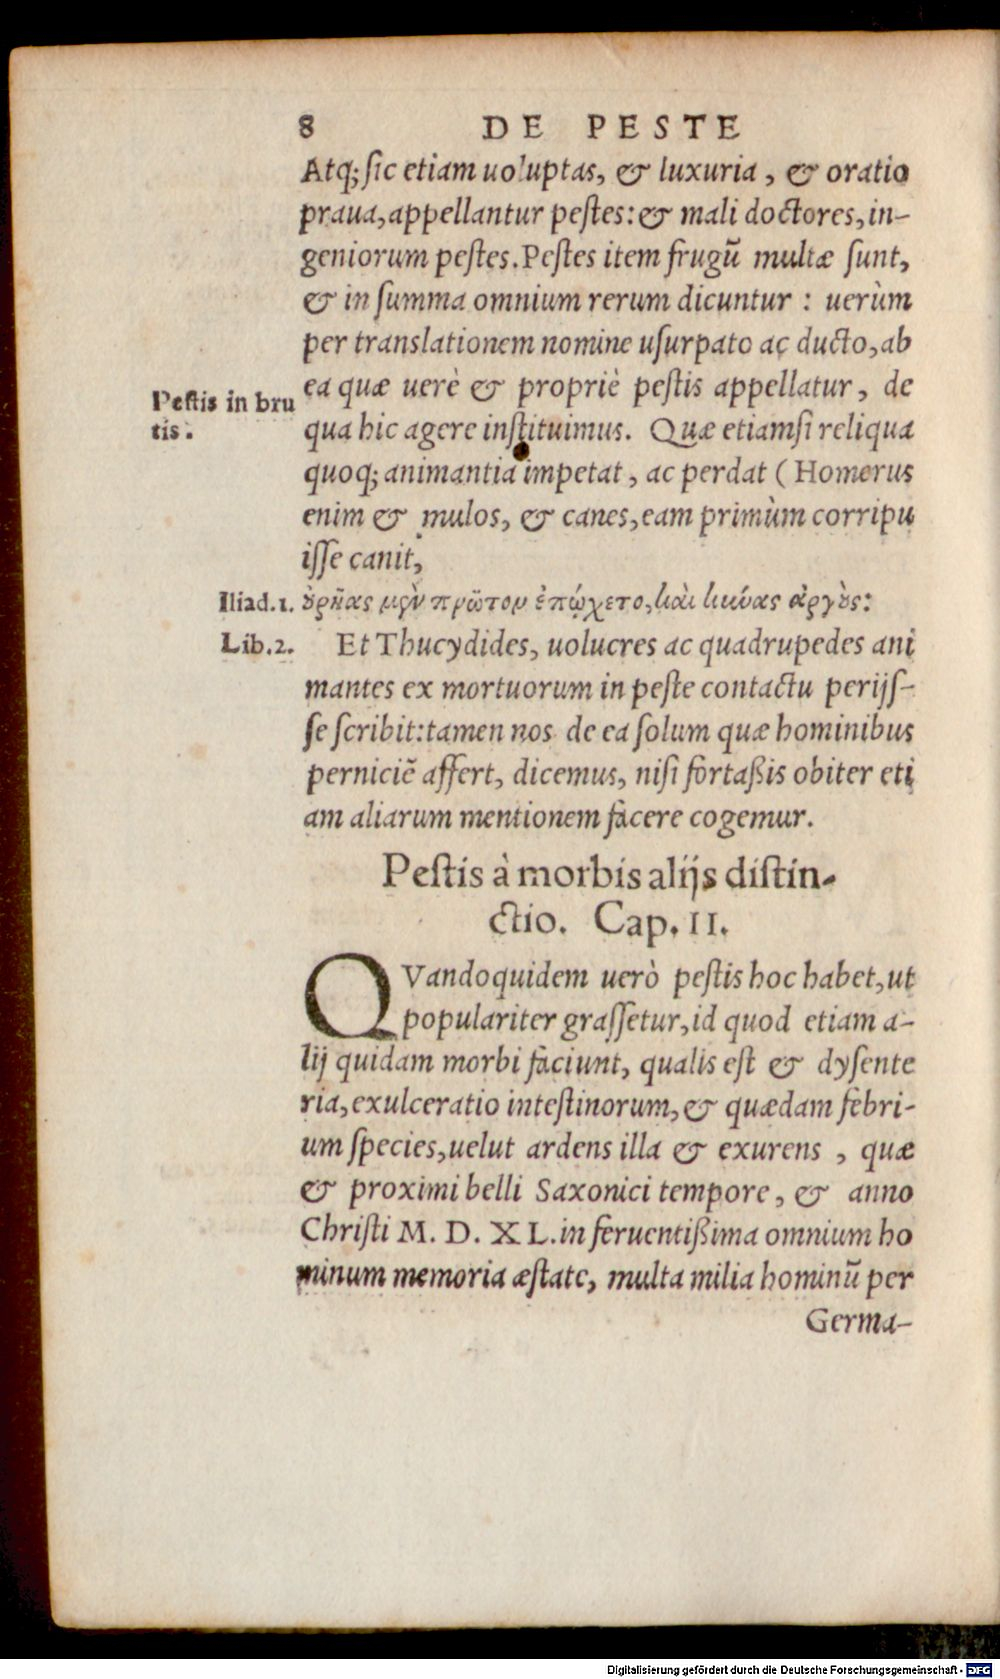 8 DE PESTE
Atq; sic etiam uoluptas, & luxuria, & oratio
praua, appellantur pestes: & mali doctores, in-
geniorum pestes. Pestes item frugũ multæ sunt,
& in summa omnium rerum dicuntur: uerùm
per translationem nomine usurpato ac ducto, ab
ea quæ uerè & propriè pestis appellatur, de
Pestis in bru
tis.
qua hic agere instituimus. Quæ etiamsi reliqua
quoq; animantia impetat, ac perdat (Homerus
enim & mulos, & canes, eam primùm corripu
isse canit,
Iliad.1. οὐρῆας μὲν πρῶτον ἐπῴχετο, καὶ κύνας ἀργούς:
Lib.2. Et Thucydides, uolucres ac quadrupedes ani
mantes ex mortuorum in peste contactu perijs-
se scribit: tamen nos de ea solum quæ hominibus
perniciẽ affert, dicemus, nisi fortaßis obiter eti
am aliarum mentionem facere cogemur.
Pestis à morbis alijs distin-
ctio. Cap. II.
QVandoquidem uerò pestis hoc habet, ut
populariter grassetur, id quod etiam a-
lij quidam morbi faciunt, qualis est & dysente
ria, exulceratio intestinorum, & quædam febri-
um species, uelut ardens illa & exurens, quæ
& proximi belli Saxonici tempore, & anno
Christi M. D. XL. in feruentißima omnium ho
minum memoria æstate, multa milia hominũ per
Germa-
Digitalisierung gefördert durch die Deutsche Forschungsgemeinschaft - DFG